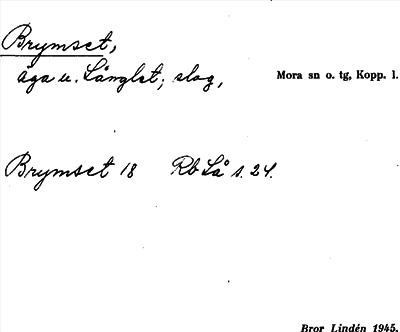 Brymset,
äga u. Långlet; slog,
Mora sn o. tg, Kopp. l.
Brymset 18 Rb Lå s. 24.
Bror Lindén 1945.